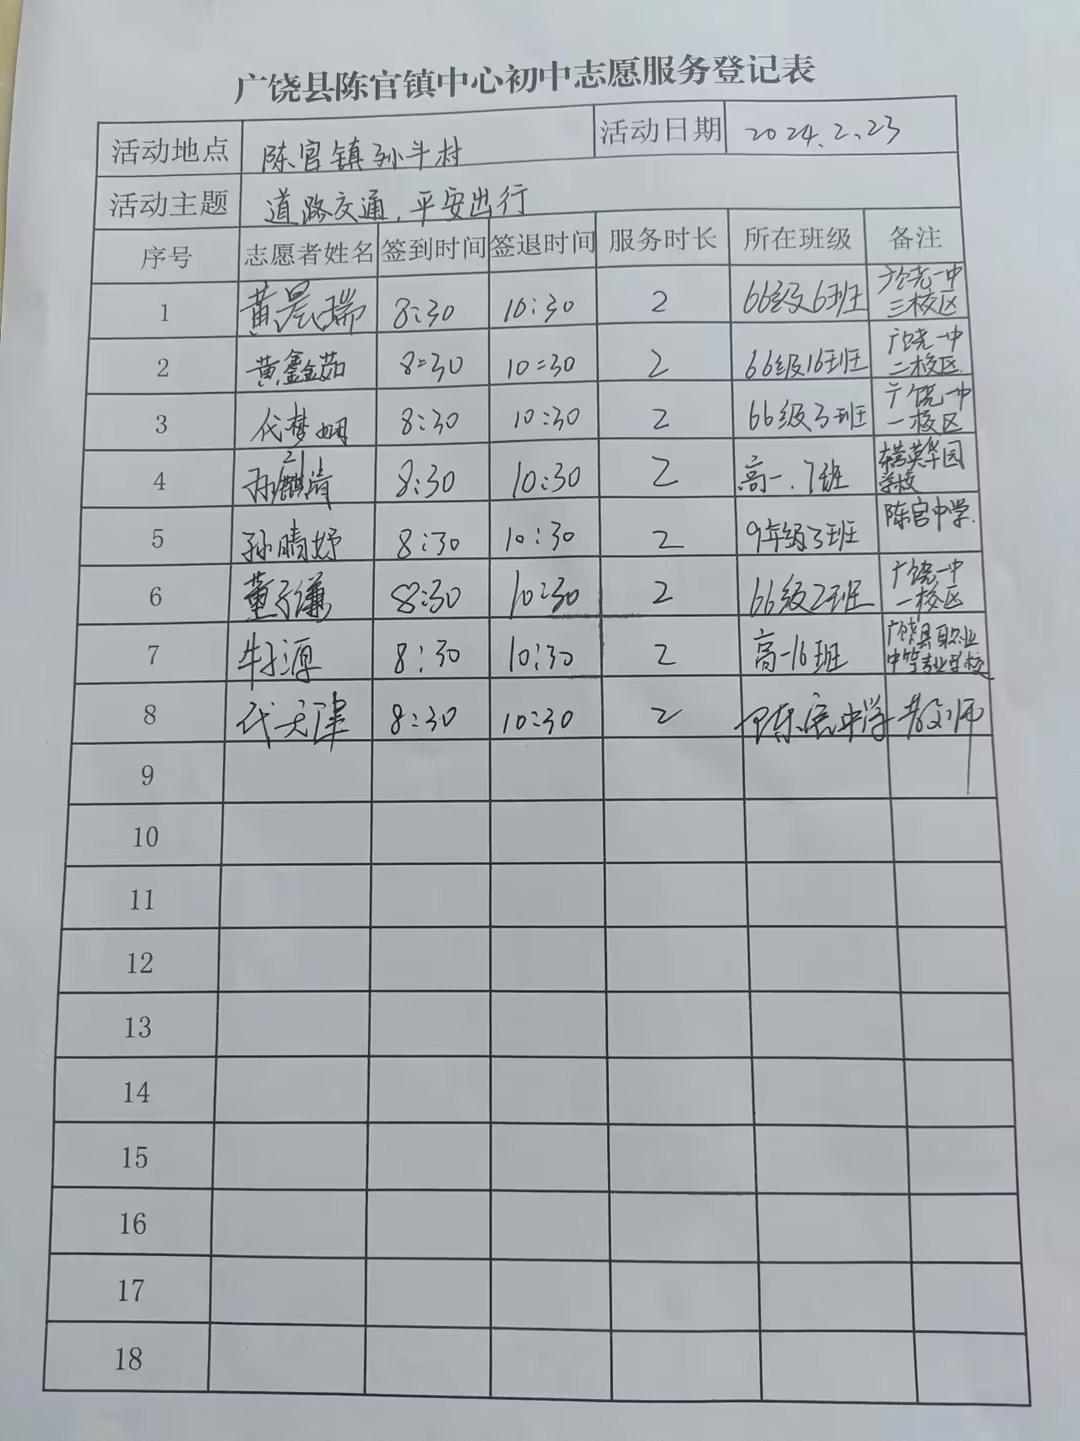 广饶县陈官镇中心初中志愿服务登记表
活动地点 陈官镇孙斗村 活动日期 2024.2.23
活动主题 道路交通,平安出行
序号 志愿者姓名 签到时间 签退时间 服务时长 所在班级 备注
1 黄晨瑞 8:30 10:30 2 66级6班 广饶一中三校区
2 黄鑫茹 8:30 10:30 2 66级16班 广饶一中二校区
3 代梦姻 8:30 10:30 2 66级3班 广饶一中一校区
4 孙麒清 8:30 10:30 2 高一.7班 英华园学校
5 孙晴妤 8:30 10:30 2 9年级3班 陈官中学.
6 董子谦 8:30 10:30 2 66级2班 广饶一中一校区
7 牛源 8:30 10:30 2 高一16班 广饶县职业中等专业学校
8 代天津 8:30 10:30 2 陈官中学 教师
9
10
11
12
13
14
15
16
17
18